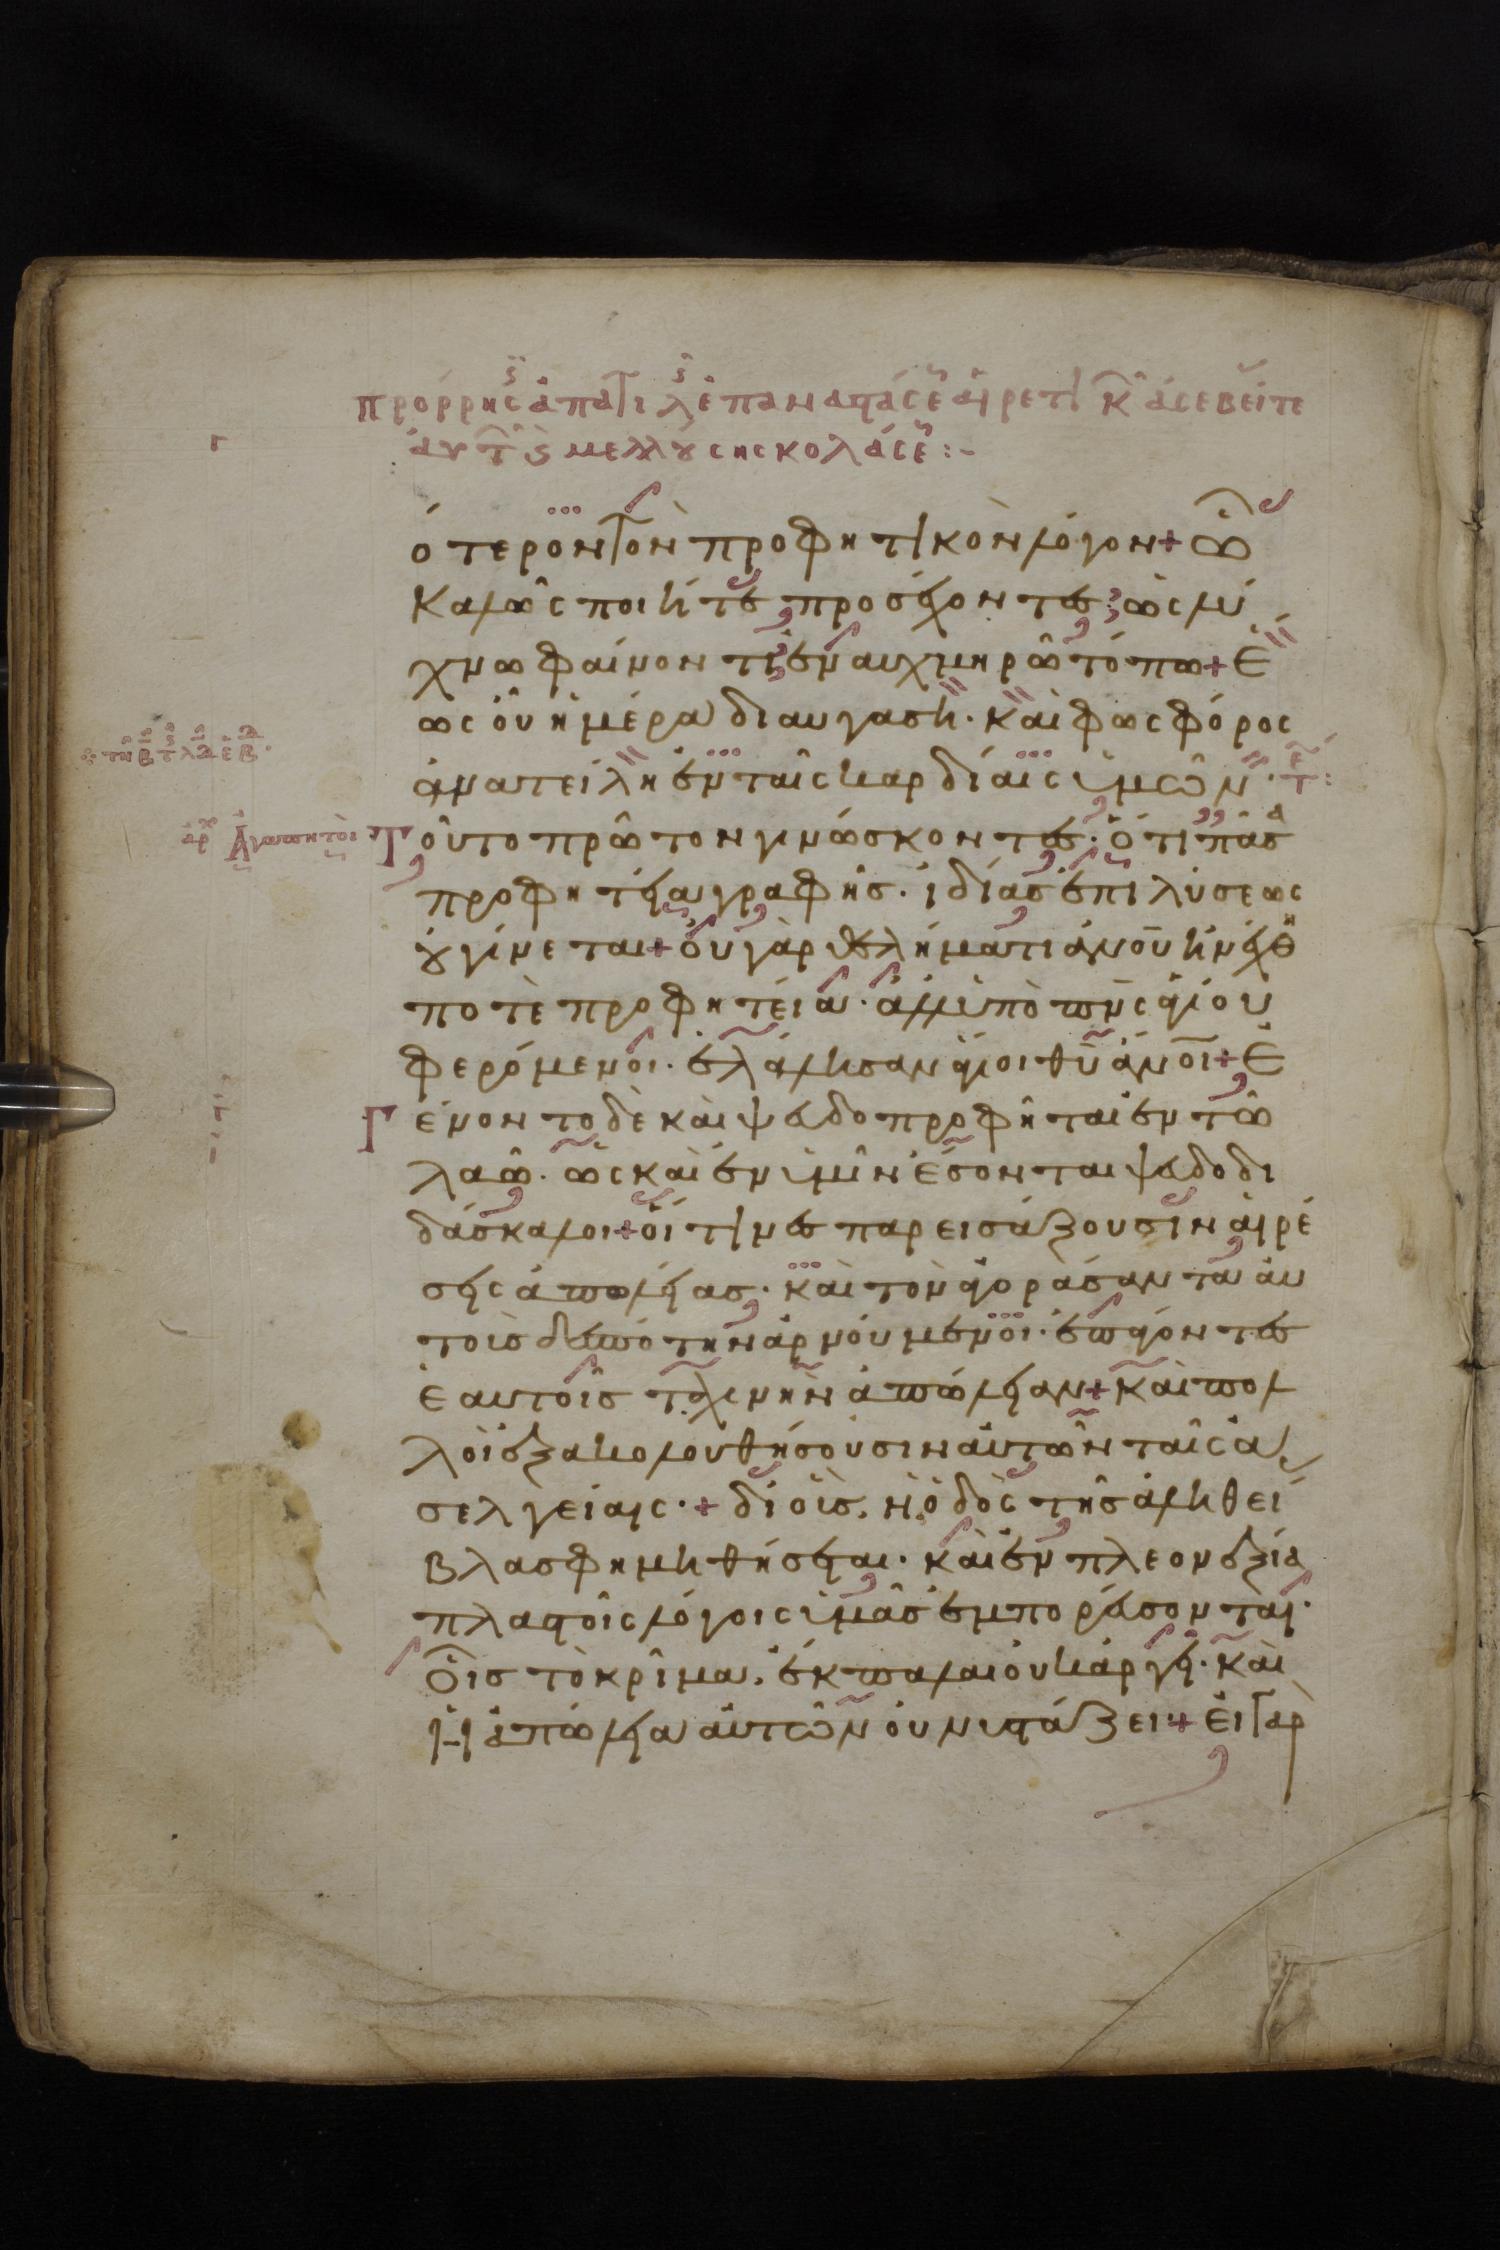 ότερον τὸν προφητικὸν λόγον + ᾧ
καλῶς ποιεῖτε προσέχοντες· ὡς λύ
χνω φαίνοντι ἐν αυχμηρῶ τόπω + ἕ
ως οὗ ἡμέρα διαυγάση· καὶ φωσφόρος
ἀνατείλη ἐν ταῖς καρδίαις ὑμῶν·
Τοῦτο πρῶτον γινώσκοντες· ὅτι πᾶσα
προφητεία γραφῆς· ἰδίας ἐπιλύσεως
οὐ γίνεται + οὐ γὰρ θελήματι ἀνου ἠνέχθη
ποτὲ προφητεία· ἀλλ ὑπὸ πνς ἁγίου
φερόμενοι· ἐλάλησαν ἅγιοι θυ ἄνοι + Ἐ
Γ ένοντο δὲ καὶ ψευδοπροφῆται ἐν τῶ
λαῶ· ὡς καὶ ἐν ὑμῖν ἔσονται ψευδοδι
δάσκαλοι + οἵτινες παρεισάξουσιν αἱρέ
σεις ἀπωλείας· καὶ τὸν ἀγοράσαντα αὐ
τοὺς δεσπότην ἀρνούμενοι· ἐπάγοντες
ἑαυτοῖς ταχινὴν ἀπώλειαν + καὶ πολ
λοὶ ἐξακολουθήσουσιν αὐτῶν ταῖς ἀ
σελγείαις· + δι οὓς ἡ ὁδὸς τῆς ἀληθεί
βλασφημηθήσεται· καὶ ἐν πλεονεξία
πλαστοῖς λόγοις ὑμᾶς ἐμπορεύσονται·
Οἷς τὸ κρῖμα· ἔκπαλαι οὐκ ἀργεῖ· καὶ
Ἡ ἀπώλεια αὐτῶν οὐ νυστάξει + Εἰ γὰρ